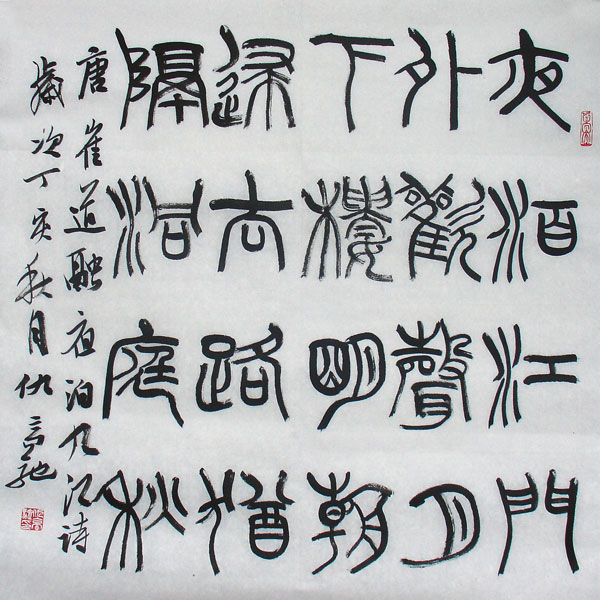 夜泊江門
外歡聲月
下樓明朝
歸去路猶
隔洞庭秋
唐崔道融夜泊九江诗
歲次丁亥秋月仇